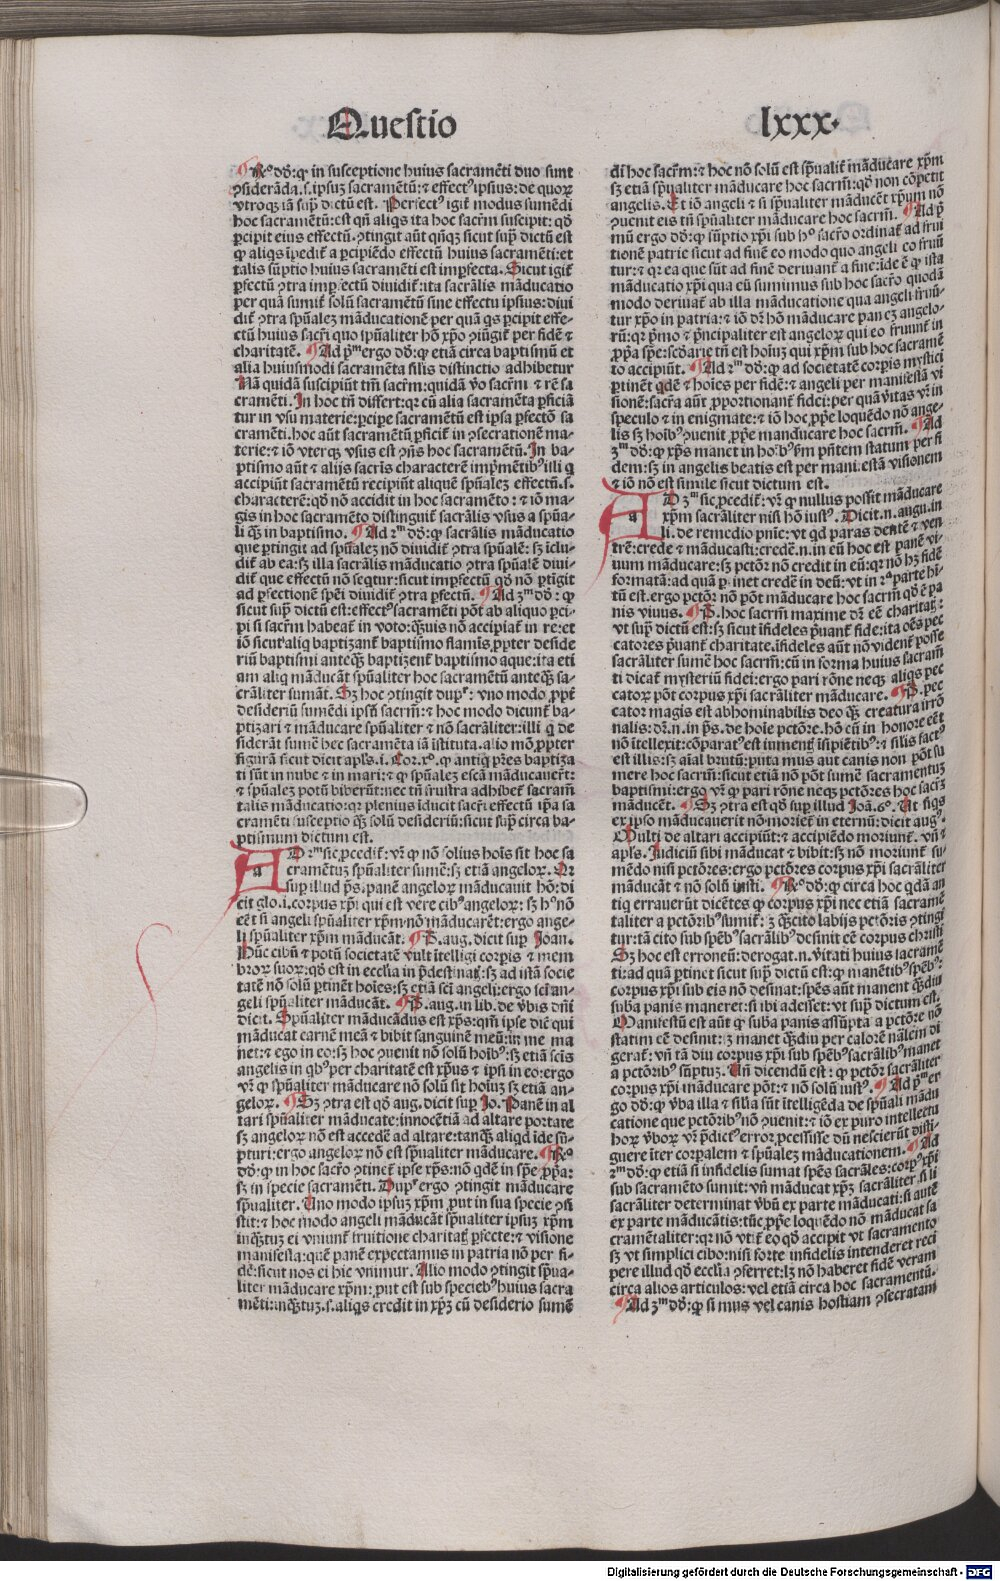 Questio
lxxx.
¶ Rº dōƺ: ꝙ in susceptione huius sacramēti duo sunt
ꝯsiderāda .s. ipsuƺ sacramētū: ⁊ effectꝰ ipsius: de quoꝝ
vtroqƺ iā supͣ dictū est. Perfectꝰ igit̄ modus sumēdi
hoc sacramētū: est qn̄ aliqs ita hoc sacr̄m suscipit: qð
ꝑcipit eius effectū. ꝯtingit aūt qn̄qƺ sicut supͣ dictū est
ꝙ aliqs īpedit̄ a ꝑcipiēdo effectū huius sacramēti: et
talis sūptio huius sacramēti est imꝑfecta. Sicut igit̄
ꝑfectū ꝯtra imꝑfectū diuidit̄: ita sacrālis māducatio
per quā sumit̄ solū sacramētū sine effectu ipsius: diui
dit̄ ꝯtra spūaleƺ māducationē per quā qs ꝑcipit effe-
ctū huius sacrī quo spūaliter hō xp̄o ꝯiūgit̄ per fidē ⁊
charitatē. ¶ Ad pͥmͫ ergo dōƺ: ꝙ etiā circa baptismū et
alia huiusmodi sacramēta silis distinctio adhibetur
Nā quidā suscipiūt tm̄ sacr̄m: quidā v̊o sacr̄m ⁊ rē sa
cramēti. In hoc tn̄ differt: qꝛ cū aliq̄ sacramēta ꝑficiā
tur in vsu materie: ꝑcipe sacramētū est ipsa ꝑfectō sa
cramēti. hoc aūt sacramētū ꝑficit̄ in ꝯsecrationē ma-
terie: ⁊ iō vterqƺ vsus est ꝯn̄s hoc sacramētū. In ba-
ptismo aūt ⁊ alijs sacrīs characterē impͥmētibꝰ illi q
accipiūt sacramētū recipiūt aliquē spūaleƺ effectū .s.
characterē: qð nō accidit in hoc sacramēto: ⁊ iō ma-
gis in hoc sacramēto distinguit̄ sacrālis vsus a spūa-
li qͣƺ in baptismo. ¶ Ad 2ͫ dōƺ: ꝙ sacrālis māducatio
que ꝑtingit ad spūaleƺ nō diuidit̄ ꝯtra spūalē: sƺ īclu-
dit̄ ab ea: sƺ illa sacrālis māducatio ꝯtra spūalē diui-
dit̄ que effectū nō seqtur: sicut imꝑfectū qð nō ꝑtīgit
ad ꝑfectionē spēi diuidit̄ ꝯtra ꝑfectū. ¶ Ad 3ͫ dōƺ: ꝙ
sicut supͣ dictū est: effectꝰ sacramēti pōt ab aliquo ꝑci-
pi si sacr̄m habeat̄ in voto: qͣƺuis nō accipiat̄ in re: et
iō sicut aliq baptizant̄ baptismo flamīs ꝓpter deside
riū baptismi anteqͣƺ baptizent̄ baptismo aque: ita eti
am aliq māducāt spūaliter hoc sacramētū anteqͣƺ sa-
crāliter sumāt. Sƺ hoc ꝯtingit dupͬ: vno modo ꝓpt̄
desideriū sumēdi ipsū sacr̄m: ⁊ hoc modo dicunt̄ ba-
ptizari ⁊ māducare spūaliter ⁊ nō sacrāliter: illi q de
siderāt sumē hec sacramēta iā īstituta. alio mō ꝓpter
figurā sicut dicit apl̄s .i. Cor. xº. ꝙ antiq pr̄es baptiza
ti sūt in nube ⁊ in mari: ⁊ ꝙ spūaleƺ escā māducauer̄t:
⁊ spūaleƺ potū biberūt: nec tn̄ frustra adhibet̄ sacram̄
talis māducatio: qꝛ plenius īducit sacrī effectū ipͣa sa
cramēti susceptio qͣƺ solū desideriū: sicut supͣ circa ba-
ptismum dictum est.
AD 2ͫ sic ꝓcedit̄: vr̄ ꝙ nō solius hoīs sit hoc sa
cramētuƺ spūaliter sumē: sƺ etiā angeloꝝ. Qꝛ
sup illud ps̄. panē angeloꝝ māducauit hō: di
cit glo. i. corpus xp̄i qui est vere cibꝰ angeloꝝ: sƺ hº nō
eēt si angeli spūaliter xp̄m nō māducarēt: ergo ange-
li spūaliter xp̄m māducāt. ¶ P. aug. dicit sup Joan.
Hūc cibū ⁊ potū societatē vult ītelligi corpis ⁊ mem
broꝝ suoꝝ: qð est in ecclīa in pͥdestinatꝭ: sƺ ad istā socie
tatē nō solū ꝑtinēt hoīes: sƺ etiā scī angeli: ergo scī an-
geli spūaliter māducāt. ¶ P. aug. in lib. de v̊bis dn̄i
dicit. Spūaliter māducādus est xp̄s: qm̄ ipse dic̄ qui
māducat carnē meā ⁊ bibit sanguinē meū: in me ma
net: ⁊ ego in eo: sƺ hoc ꝯuenit nō solū hoībꝰ: sƺ etiā scīs
angelis in qbꝰ per charitatē est xp̄us ⁊ ipsi in eo: ergo
vr̄ ꝙ spūaliter māducare nō solū sit hoīuƺ sƺ etiā an-
geloꝝ. ¶ Sƺ ꝯtra est qð aug. dicit sup Jo. Panē in al
tari spūaliter māducate: innocētiā ad altare portate
sƺ angeloꝝ nō est accedē ad altare: tanqͣƺ aliqd īde sū-
pturi: ergo angeloꝝ nō est spūaliter māducare. ¶ Rº
dōƺ: ꝙ in hoc sacrō ꝯtinet̄ ipse xp̄s: nō qdē in spē ꝓpͥa:
sƺ in specie sacramēti. Dupͬ ergo ꝯtingit māducare
spūaliter. Uno modo ipsuƺ xp̄m ꝓut in sua specie ꝯsi
stit: ⁊ hoc modo angeli māducāt spūaliter ipsuƺ xp̄m
inqͣƺtuƺ ei vniunt̄ fruitione charitatꝭ ꝑfecte: ⁊ visione
manifesta: quē panē expectamus in patria nō per fi-
dē: sicut nos ei hic vnimur. Alio modo ꝯtingit spūa-
liter māducare xp̄m: ꝓut est sub speciebꝰ huius sacra
mēti: inqͣƺtuƺ .s. aliqs credit in xp̄ƺ cū desiderio sumē
di hoc sacr̄m: ⁊ hoc nō solū est spūalit̄ māducare xp̄m
sƺ etiā spūaliter māducare hoc sacr̄m: qð nō cōpetit
angelis. Et iō angeli ⁊ si spūaliter māducēt xp̄um nō
ꝯuenit eis tn̄ spūaliter māducare hoc sacr̄m. ¶ Ad pͥ
mū ergo dōƺ: ꝙ sūptio xp̄i sub hº sacrō ordinat̄ ad frui
tionē patrie sicut ad finē eo modo quo angeli eo fruū
tur: ⁊ qꝛ ea que sūt ad finē deriuant̄ a fine: īde ē ꝙ ista
māducatio xp̄i qua eū sumimus sub hoc sacrō quodā
modo deriuat̄ ab illa māducatione qua angeli fruū-
tur xp̄o in patria: ⁊ iō dr̄ hō māducare paneƺ angelo-
rū: qꝛ pͥmo ⁊ pͥncipaliter est angeloꝝ qui eo fruunt̄ in
ꝓpͥa spē: scd̄arie tn̄ est hoīuƺ qui xp̄m sub hoc sacramē
to accipiūt. ¶ Ad 2ͫ dōƺ: ꝙ ad societatē corpis mystici
ꝑtinēt qdē ⁊ hoīes per fidē: ⁊ angeli per manifestā vi
sionē: sacrā aūt ꝓportionant̄ fidei: per quā v̄itas vr̄ in
speculo ⁊ in enigmate: ⁊ iō hoc ꝓpͥe loquēdo nō ange-
lis sƺ hoībꝰ ꝯuenit ꝓpͥe manducare hoc sacr̄m. ¶ Ad
3ͫ dōƺ: ꝙ xp̄s manet in hoībꝰ ꝑm pn̄tem statum per fi
dem: sƺ in angelis beatis est per manifestā visionem
⁊ iō nō est simile sicut dictum est.
AD 3ͫ sic ꝓcedit̄: vr̄ ꝙ nullus possit māducare
xp̄m sacrāliter nisi hō iustꝰ. Dicit .n. augu. in
li. de remedio pn̄ie: vt qd paras dentē ⁊ ven
trē: crede ⁊ māducasti: credē .n. in eū hoc est panē vi-
uum māducare: sƺ pctōr nō credit in eū: qꝛ nō hƺ fidē
formatā: ad quā ꝑtinet credē in deū: vt in 2ª parte hī-
tū est. ergo pctōr nō pōt māducare hoc sacr̄m qð ē pa
nis viuus. ¶ P. hoc sacr̄m maxime dr̄ eē charitatꝭ:
vt supͣ dictū est: sƺ sicut īfideles pͥuant̄ fide: ita oēs pec
catores pͥuant̄ charitate. īfideles aūt nō vident̄ posse
sacrāliter sumē hoc sacr̄m: cū in forma huius sacram̄
ti dicat̄ mysteriū fidei: ergo pari rōne neqƺ aliqs pec
catoꝝ pōt corpus xp̄i sacrāliter māducare. ¶ P. pec
cator magis est abhominabilis deo qͣƺ creatura irrō
nalis: dr̄ .n. in ps̄. de hoīe pctōre. hō cū in honore eēt
nō ītellexit: cōparatꝰ est iumentꝭ īsipiētibꝰ: ⁊ silis factꝰ
est illis: sƺ aīal brutū: puta mus aut canis non pōt su
mere hoc sacr̄m: sicut etiā nō pōt sumē sacramentuƺ
baptismi: ergo vr̄ ꝙ pari rōne neqƺ pctōres hoc sacr̄m
māducēt. ¶ Sƺ ꝯtra est qð sup illud Joā. 6º. Ut siqs
ex ipso māducauerit nō moriet̄ in eternū: dicit augꝰ.
Multi de altari accipiūt: ⁊ accipiēdo moriunt̄. vn̄ ⁊
apl̄s. Judiciū sibi māducat ⁊ bibit: sƺ nō moriunt̄ su-
mēdo nisi pctōres: ergo pctōres corpus xp̄i sacrāliter
māducāt ⁊ nō solū iusti. ¶ Rº dōƺ: ꝙ circa hoc qdā an
tiq errauerūt dicētes ꝙ corpus xp̄i nec etiā sacramē
taliter a pctōribꝰ sumit̄: ƺ qͣƺcito labijs pctōris ꝯtingi
tur: tā cito sub spēbꝰ sacrālibꝰ desinit eē corpus christi
Sƺ hoc est erroneū: derogat .n. v̄itati huius sacramē
ti: ad quā ꝑtinet sicut supͣ dictū est: ꝙ manētibꝰ spēbꝰ:
corpus xp̄i sub eis nō desinat: spēs aūt manent qͣƺdiu
subā panis maneret: si ibi adesset: vt supͣ dictum est.
Manifestū est aūt ꝙ subā panis assūpta a pctōre nō
statim eē desinit: ƺ manet qͣƺdiu per calorē nālem di
gerat̄: vn̄ tā diu corpus xp̄i sub spēbꝰ sacrālibꝰ manet
a pctōribꝰ sūptuƺ. Un̄ dicendū est: ꝙ pctōr sacrāliter
corpus xp̄i māducare pōt: ⁊ nō solū iustꝰ. ¶ Ad pͥmͫ er
go dōƺ: ꝙ v̊ba illa ⁊ silia sūt ītelligēda de spūali mādu
catione que pctōribꝰ nō ꝯuenit: ⁊ iō ex puro intellectu
hoꝝ v̊boꝝ vr̄ pͥdictꝰ error ꝓcessisse dū nescierūt disti-
guere īter corpalem ⁊ spūaleƺ māducationem. ¶ Ad
2ͫ dōƺ: ꝙ etiā si infidelis sumat spēs sacrāles: corpꝰ xp̄i
sub sacramēto sumit: vn̄ māducat xp̄uƺ sacrāliter: si li
sacrāliter determinat v̊bū ex parte māducati: si autē
ex parte māducātis: tūc ꝓpͥe loquēdo nō māducat sa
cramētaliter: qꝛ nō vtit̄ eo qð accipit vt sacramento
sƺ vt simplici cibo: nisi forte infidelis intenderet reci
pere illud qð ecclīa ꝯferret: lƺ nō haberet fidē veram
circa alios articulos: vel etiā circa hoc sacramentū.
¶ Ad 3ͫ dōƺ: ꝙ si mus vel canis hostiam ꝯsecratam
Digitalisierung gefördert durch die Deutsche Forschungsgemeinschaft - DFG